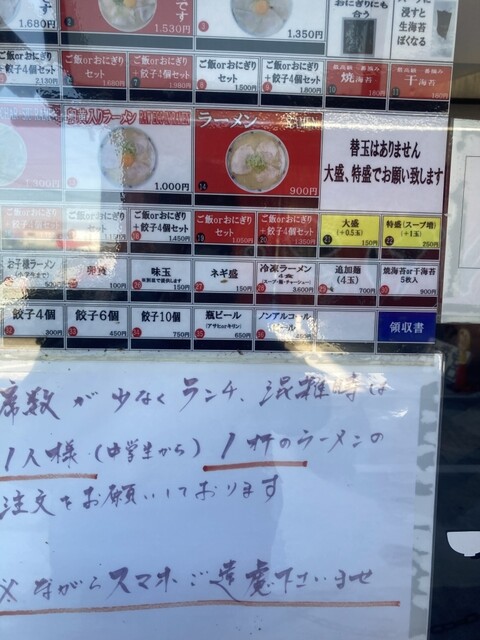 です
1,530円
1,350円
おにぎりにも
合う
スープに
浸すと
生海苔
ぽくなる
ご飯orおにぎり
+餃子4個セット
1,230円
ご飯orおにぎり
セット
1,680円
ご飯orおにぎり
+餃子4個セット
1,980円
ご飯orおにぎり
セット
1,500円
ご飯orおにぎり
+餃子4個セット
1,800円
焼海苔
180円
干海苔
180円
卵黄入りラーメン
1,000円
ラーメン
900円
替玉はありません
大盛、特盛でお願い致します
ご飯orおにぎり
+餃子4個セット
1,450円
ご飯orおにぎり
セット
1,050円
ご飯orおにぎり
+餃子4個セット
1,350円
大盛
(+0.5玉)
150円
特盛(スープ増)
(+1玉)
250円
お子様ラーメン
500円
100円
味玉
150円
ネギ盛
150円
冷凍ラーメン
4食
スープ・麺・チャーシュー
3,600円
追加麺
(4玉)
700円
焼海苔or干海苔
5枚入
900円
餃子4個
300円
餃子6個
450円
餃子10個
750円
瓶ビール
(アサヒorキリン)
650円
ノンアルコール
ビール
領収書
席数が少なくランチ、混雑時は
1人様(中学生から)1杯のラーメンの
注文をお願いしております
※ながらスマホご遠慮下さいませ